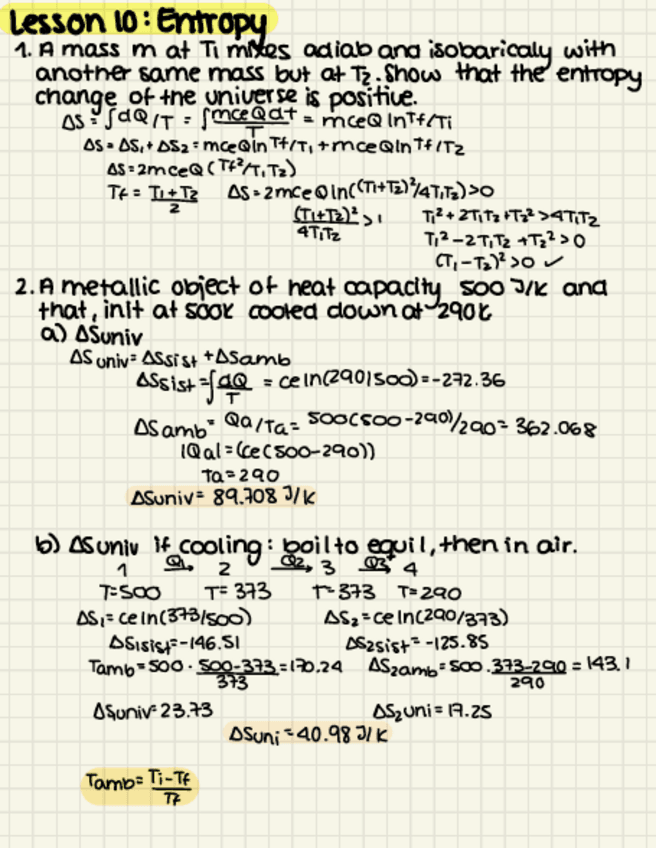 Lesson 10: Entropy
1. A mass m at Ti mixes adiab and isobaricaly with
another same mass but at T₂. Show that the entropy
change of the universe is positive.
ΔS = ∫dQ/T = ∫mceQdt/T = mceQ lnTf/Ti
ΔS = ΔS₁ + ΔS₂ = mceQ ln Tf/T₁ + mceQ ln Tf/T₂
ΔS = 2mceQ (Tf²/T₁T₂)
Tf = T₁+T₂/2 ΔS = 2mceQ ln((T₁+T₂)²/4T₁T₂) > 0
(T₁+T₂)²/4T₁T₂ > 1 T₁² + 2T₁T₂ + T₂² > 4T₁T₂
T₁² - 2T₁T₂ + T₂² > 0
(T₁ - T₂)² > 0 ✓
2. A metallic object of heat capacity 500 J/K and
that, init at 500K cooled down at 290K
a) ΔSuniv
ΔSuniv = ΔSsist + ΔSamb
ΔSsist = ∫dQ/T = ce ln(290/500) = -272.36
ΔSamb = Qa/Ta = 500(500-290)/290 = 362.068
|Qa| = (ce(500-290))
Ta = 290
ΔSuniv = 89.708 J/K
b) ΔSuniv if cooling: boil to equil, then in air.
1 Q₁→ 2 Q₂→ 3 Q₃→ 4
T=500 T=373 T=373 T=290
ΔS₁ = ce ln(373/500) ΔS₂ = ce ln(290/373)
ΔS₁sist = -146.51 ΔS₂sist = -125.85
Tamb = 500 · 500-373/373 = 170.24 ΔS₂amb = 500 · 373-290/290 = 143.1
ΔSuniv = 23.73 ΔS₂uni = 17.25
ΔSuni = 40.98 J/K
Tamb = Ti-Tf/Tf